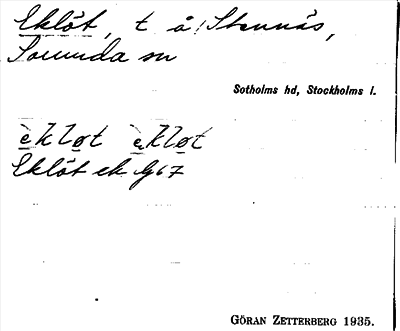 Eklöt, t å Stennäs,
Sorunda sn
Sotholms hd, Stockholms l.
èkløt èkløt
Eklöt ek G67
GÖRAN ZETTERBERG 1935.